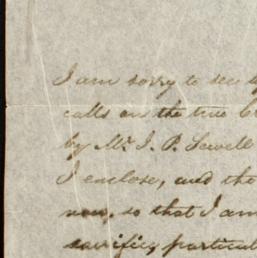 I am sorry to see
calls on the true
by Mr. J. P. Sewell
I enclose, and the
now, so that I am
sacrifice, particul